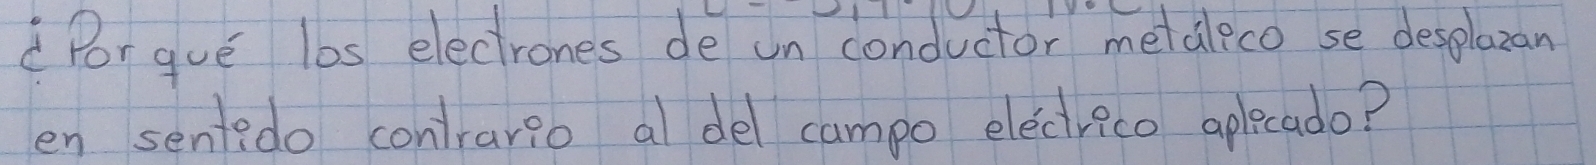 ¿Por qué los electrones de un conductor metálico se desplazan
en sentido contrario al del campo eléctrico aplicado?